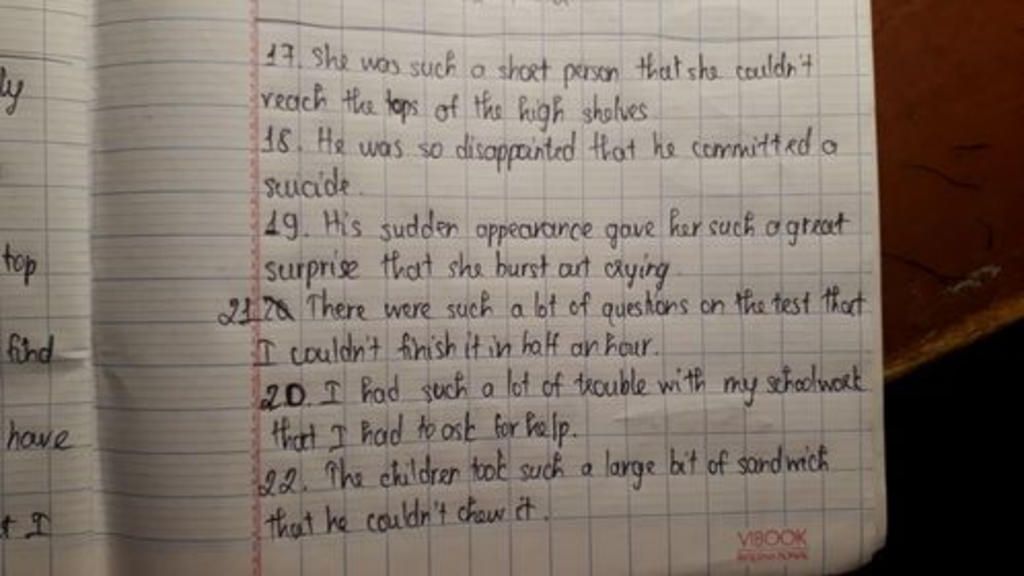 17. She was such a short person that she couldn't
reach the tops of the high shelves
18. He was so disappointed that he committed a
suicide.
19. His sudden appearance gave her such a great
surprise that she burst out crying
21. There were such a lot of questions on the test that
I couldn't finish it in half an hour.
20. I had such a lot of trouble with my schoolwork
that I had to ask for help.
22. The children took such a large bit of sandwich
that he couldn't chew it.
ly
top
find
have
I
VIBOOK
INTERNATIONAL